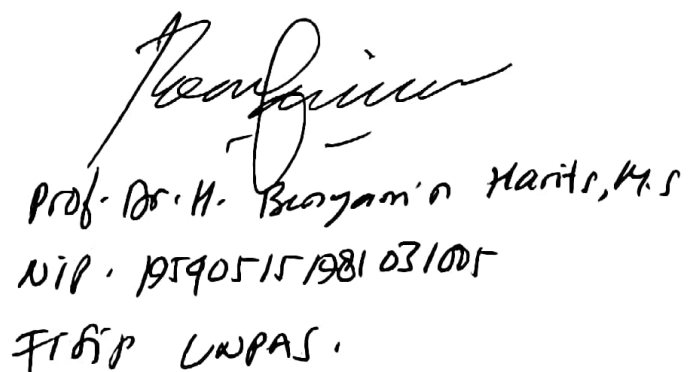 Prof. Dr. H. Benyamin Harits, M.S
NIP. 195905151981031005
FISIP UNPAS.